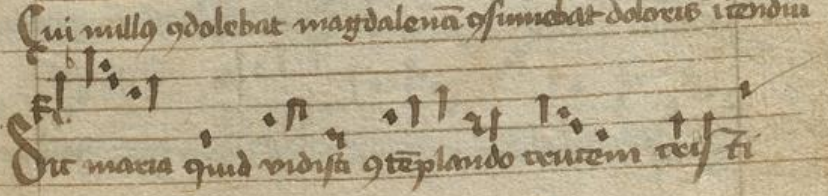 Cui nullꝯ ꝯdolebat magdalenā ꝯsumebat doloris
Dic maria quid vidisti ꝯtēplando crucem cristi